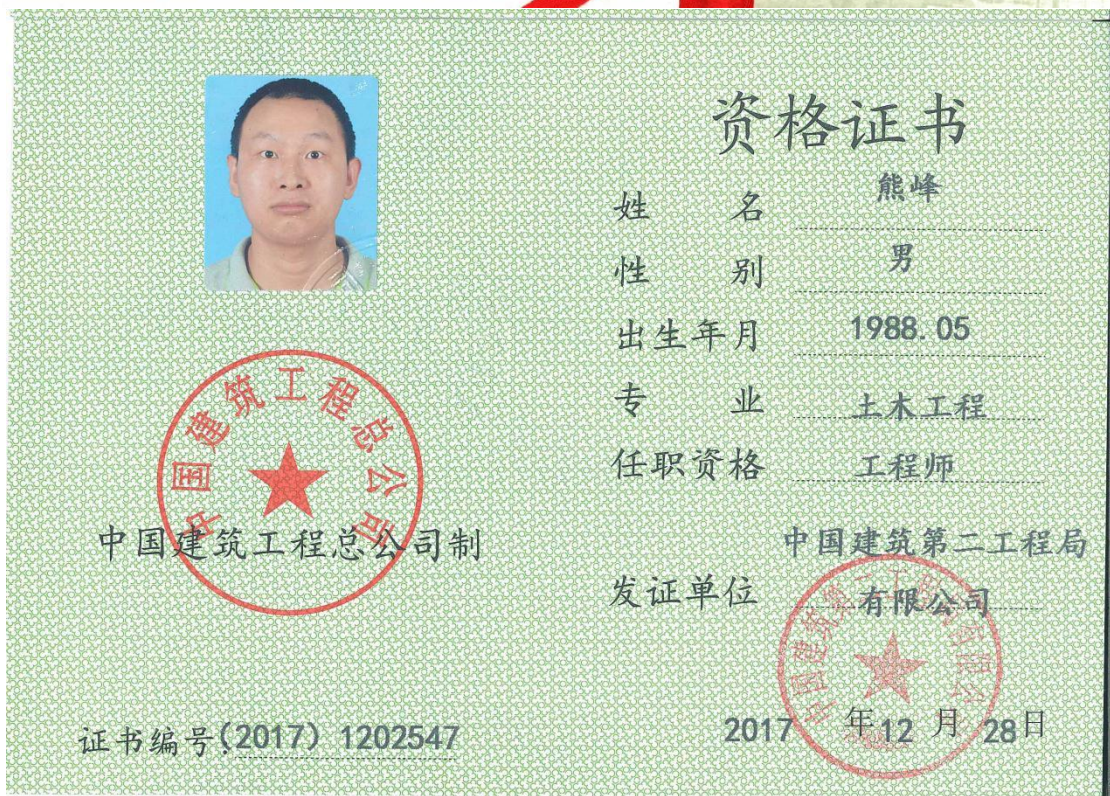 资格证书
姓名 熊峰
性别 男
出生年月 1988.05
专业 土木工程
任职资格 工程师
中国建筑第二工程局
发证单位 有限公司
2017 年 12 月 28 日
中国建筑工程总公司
中国建筑工程总公司制
证书编号:(2017) 1202547